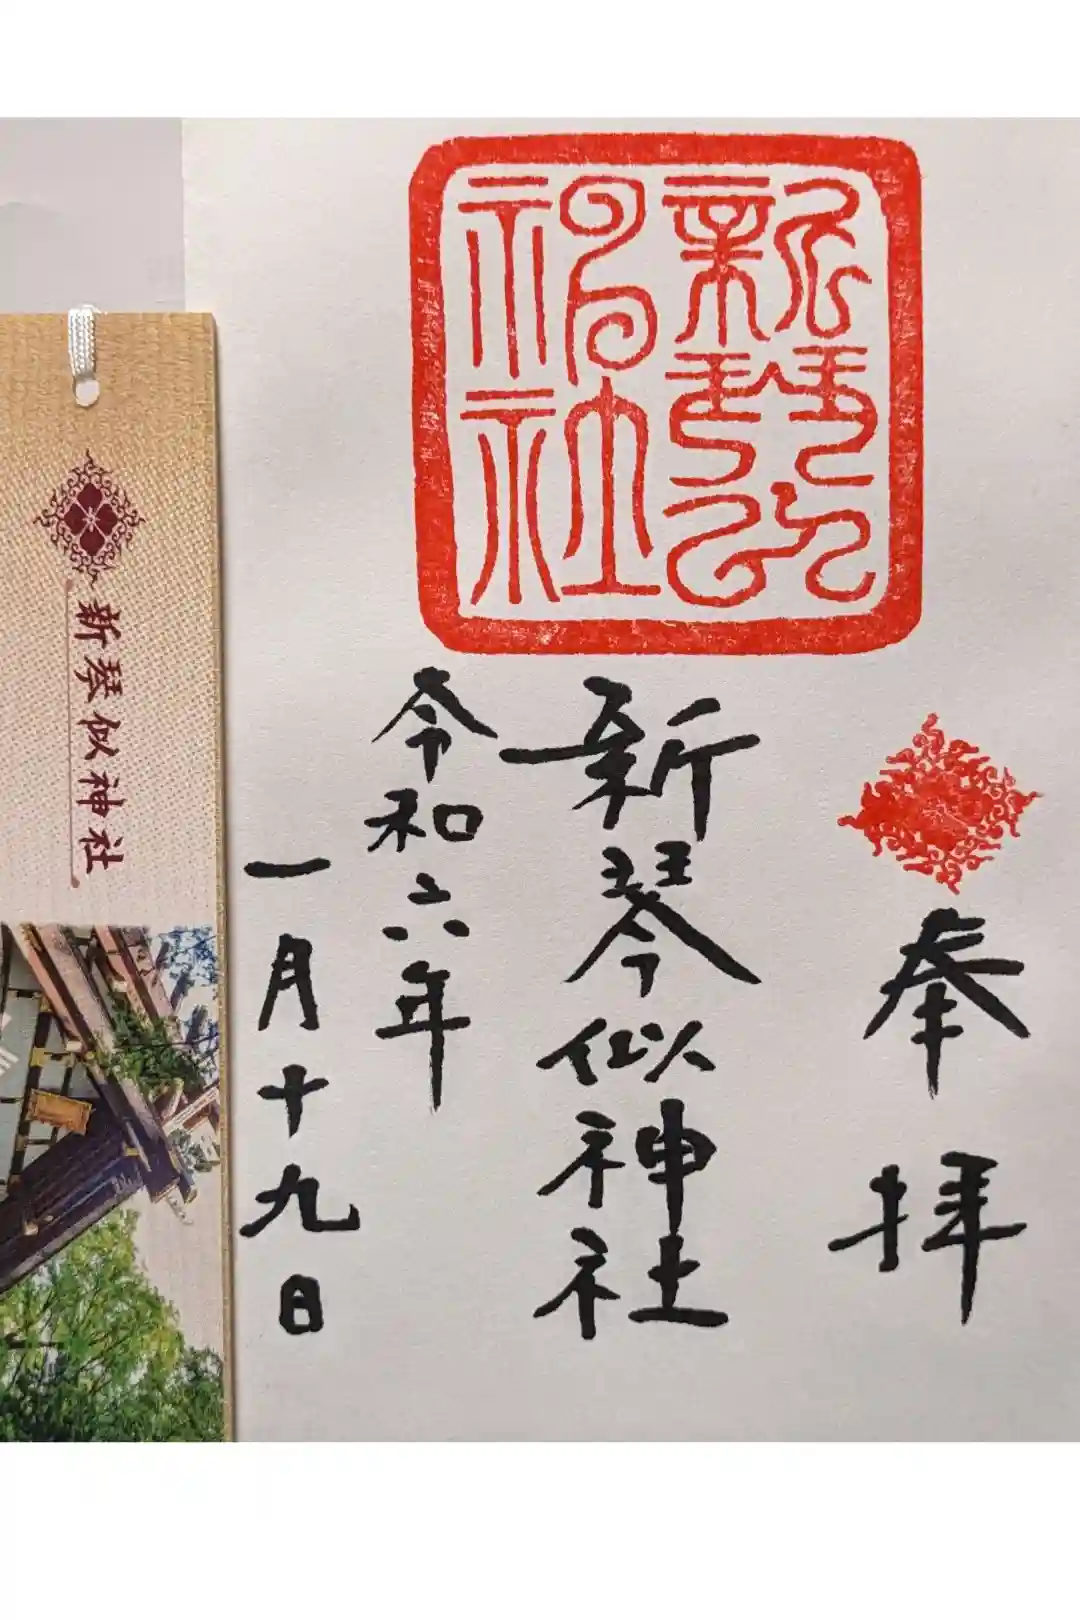 新琴似
神社
奉拝
新琴似神社
令和六年
一月十九日
新琴似神社